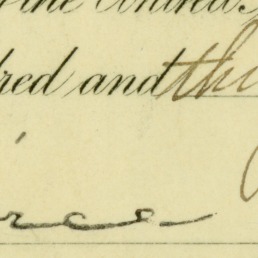 the United
dred and thi
rce